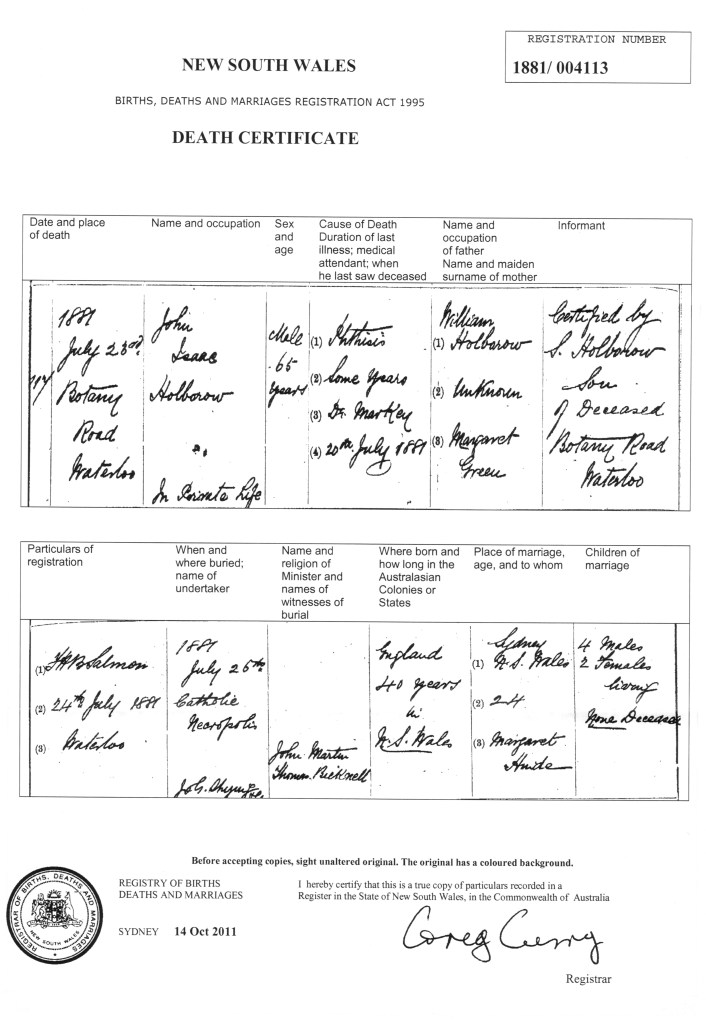 REGISTRATION NUMBER
1881/ 004113
NEW SOUTH WALES
BIRTHS, DEATHS AND MARRIAGES REGISTRATION ACT 1995
DEATH CERTIFICATE
Date and place
of death
Name and occupation
Sex
and
age
Cause of Death
Duration of last
illness; medical
attendant; when
he last saw deceased
Name and
occupation
of father
Name and maiden
surname of mother
Informant
1881
July 23rd
Botany
Road
Waterloo
John
Isaac
Holborow
In Private Life
Male
65
years
(1) Phthisis
(2) Some years
(3) Dr. Markey
(4) 20th July 1881
William
(1) Holborow
(2) Unknown
(3) Margaret
Green
Certified by
S. Holborow
Son
of Deceased
Botany Road
Waterloo
Particulars of
registration
When and
where buried;
name of
undertaker
Name and
religion of
Minister and
names of
witnesses of
burial
Where born and
how long in the
Australasian
Colonies or
States
Place of marriage,
age, and to whom
Children of
marriage
(1) Salmon
(2) 24th July 1881
(3) Waterloo
1881
July 25th
Catholic
Necropolis
John Martin
Thomas Bicknell
England
40 years
in
N. S. Wales
Sydney
(1) N. S. Wales
(2) 24
(3) Margaret
4 Males
2 Females
living
None Deceased
Before accepting copies, sight unaltered original. The original has a coloured background.
REGISTRAR OF BIRTHS, DEATHS AND MARRIAGES
NEW SOUTH WALES
REGISTRY OF BIRTHS
DEATHS AND MARRIAGES
SYDNEY 14 Oct 2011
I hereby certify that this is a true copy of particulars recorded in a
Register in the State of New South Wales, in the Commonwealth of Australia
Greg Curry
Registrar